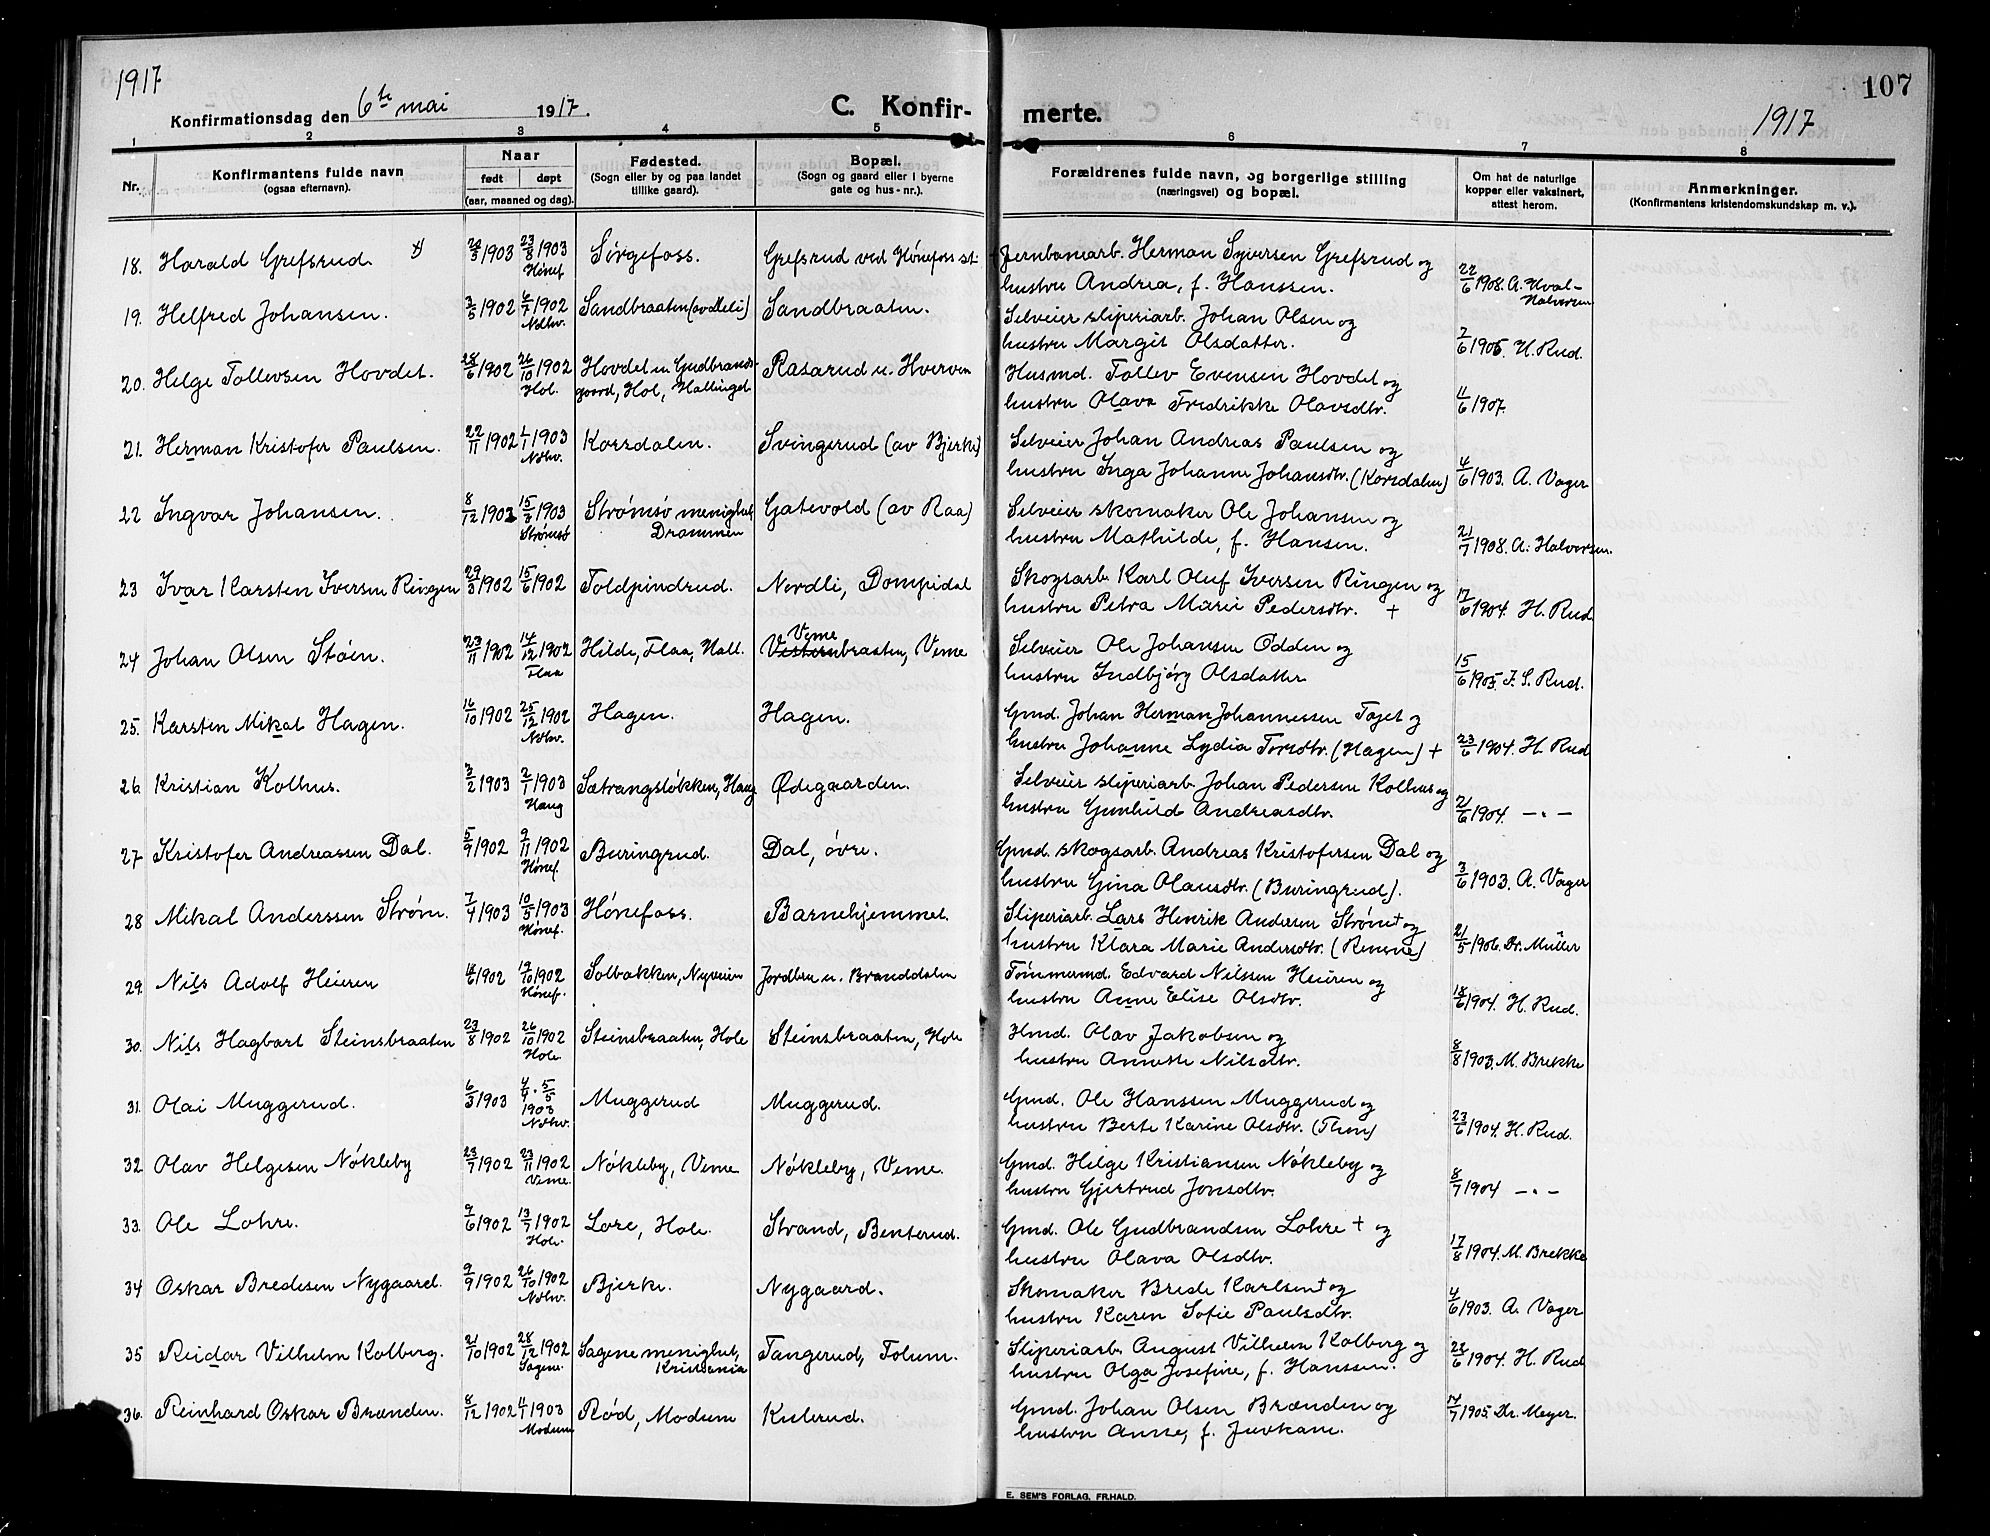 1917
Konfirmationsdag den 6te mai 1917.
C. Konfir-
merte.
1917
107
1 2 3 4 5 6 7 8
Nr.
Konfirmantens fulde navn
(ogsaa efternavn).
Naar
født døpt
(aar, maaned og dag).
Fødested.
(Sogn eller by og paa landet
tillike gaard).
Bopæl.
(Sogn og gaard eller i byerne
gate og hus-nr.).
Forældrenes fulde navn, og borgerlige stilling
(næringsvei) og bopæl.
Om hat de naturlige
kopper eller vaksinert,
attest herom.
Anmerkninger.
(Konfirmantens kristendomskundskap m. v.).
18. Harald Grefsrud 20/3 1903 23/8 1903 Sørgefoss. Grefsrud ved Hønefoss st. Jernbanearb. Herman Syversen Grefsrud og
Hønef. hustru Andrea, f. Hanssen. 22/6 1908. A. Hval-
Halvorsen
19. Helfred Johansen. 3/5 1902 6/7 1902 Sandbraaten (av Meli) Sandbraaten. Selveier sliperiarb. Johan Olsen og
Ndhv. hustru Margit Olsdatter. 2/6 1905. H. Rud.
20. Helge Tollevsen Hovdet. 28/6 1902 26/10 1902 Hovdet u. Gudbrands- Rasarud u. Hverven Husmd. Tollev Evensen Hovdet og
Hol. gaard, Hol, Hallingd. hustru Olava Fredrikke Olavsdtr. 4/6 1907.
21. Herman Kristofer Paulsen. 22/11 1902 1/1 1903 Korsdalen. Svingerud (av Bjerke) Selveier Johan Andreas Paulsen og
Ndhv. hustru Inga Johanne Johansdtr. (Korsdalen) 4/6 1903. A. Vager
22 Ingvar Johansen. 8/12 1902 15/8 1903 Strømsø menighet Gatevold (av Raa) Selveier skomaker Ole Johansen og
Strømsø Drammen hustru Mathilde, f. Hansen. 21/7 1908. A. Halvorsen.
23 Ivar Karsten Iversen Ringen 29/3 1902 15/6 1902 Toldpindrud. Nordli, Dompidal Skogsarb. Karl Oluf Iversen Ringen og
hustru Petra Marie Pedersdtr. + 17/6 1904. H. Rud
24 Johan Olsen Støen. 23/11 1902 14/12 1902 Hilde, Flaa, Hall. Veme
Flaa Vesternbraaten, Veme Selveier Ole Johansen Odden og
hustru Indbjørg Olsdatter 15/6 1905. I. S. Rud.
25. Karsten Mikal Hagen. 16/10 1902 25/12 1902 Hagen. Hagen. Gmd. Johan Herman Johannessen Tajet og
Ndhv. hustru Johanne Lydia Torsdtr. (Hagen) + 23/6 1904. H. Rud
26. Kristian Kolhus. 3/2 1903 2/1 1903 Sætrangsløkken, Haug Ødegaarden. Selveier sliperiarb. Johan Pedersen Kolhus og
Haug hustru Gunhild Andreasdtr. 2/6 1904. — " —
27 Kristofer Andreassen Dal. 5/9 1902 9/11 1902 Buringrud. Dal, øvre. Gmd. skogsarb. Andreas Kristofersen Dal og
Hønef. hustru Gina Olausdtr. (Buringrud). 3/6 1903. A. Vager
28 Mikal Anderssen Strøm. 7/4 1903 10/5 1903 Hønefoss. Barnehjemmet. Sliperiarb. Lars Henrik Andersen Strøm + og
Hønef. hustru Klara Marie Andersdtr. (Renne) 21/5 1906. Dr. Müller
29. Nils Adolf Heieren 4/6 1902 19/10 1902 Solbakken, Nyveien Jordbru u. Branddalen Tømmermd. Edvard Nilssen Heieren og
Hønef. hustru Anne Elise Olsdtr. 18/6 1904. H. Rud.
30. Nils Hagbart Steinsbraaten 23/8 1902 26/10 1902 Steinsbraaten, Hole Steinsbraaten, Hole Hmd. Olav Jakobsen og
Hole. hustru Annette Nilsdtr. 8/8 1903. M. Brekke
31. Olai Muggerud. 6/3 1903 4/4 . 5/5 1903 Muggerud Muggerud. Gmd. Ole Hanssen Muggerud og
Ndhv. hustru Berte Karine Olsdtr. (Then) 23/6 1904. H. Rud.
32 Olav Helgesen Nøkleby 23/7 1902 23/11 1902 Nøkleby, Veme Nøkleby, Veme. Gmd. Helge Kristiansen Nøkleby og
Veme. hustru Gjertrud Jonsdtr. 8/7 1904 — " —
33. Ole Lohre. 9/6 1902 13/7 1902 Lore, Hole. Strand, Benterud. Gmd. Ole Gudbrandsen Lohre + og
Hole. hustru Olava Olsdtr. 17/8 1904. M. Brekke
34 Oskar Bredesen Nygaard. 9/9 1902 26/10 1902 Bjerke. Nygaard. Skomaker Brede Karlsen + og
Ndhv. hustru Karen Sofie Paulsdtr. 4/6 1903. A. Vager
35 Reidar Vilhelm Kolberg. 21/10 1902 28/12 1902 Sagene menighet, Tangerud, Tolum. Sliperiarb. August Vilhelm Kolberg og
Sagene. Kristiania hustru Olga Josefine, f. Hanssen. 22/6 1904. H. Rud
36. Reinhard Oskar Brænden. 8/12 1902 4/1 1903 Rød, Modum Kulerud. Gmd. Johan Olsen Brænden og
Modum hustru Anne, f. Juvkam. 17/7 1905. Dr. Meyer.
E. SEM'S FORLAG, FR.HALD.